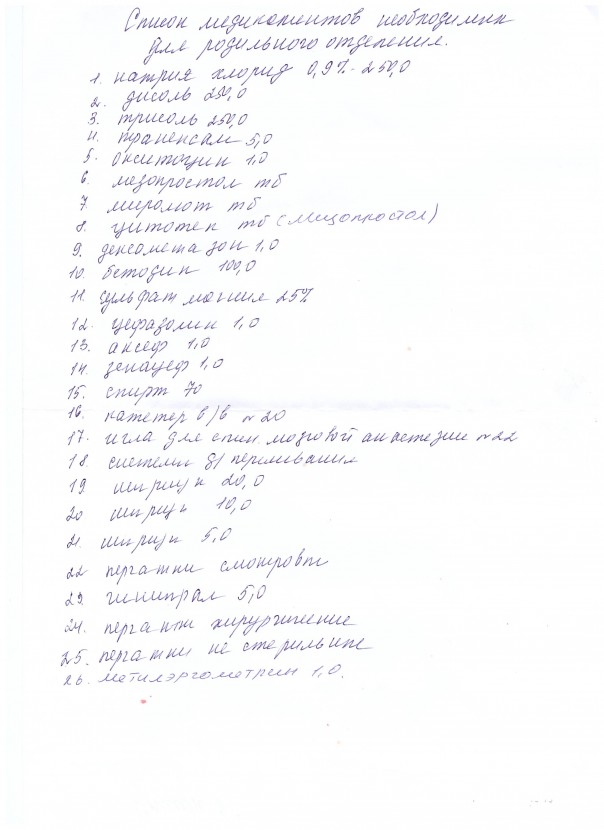 Список медикаментов необходимых
для родильного отделения.
1. натрия хлорид 0,9% - 250,0
2. дисоль 250,0
3. трисоль 250,0
4. транексам 5,0
5. окситоцин 1,0
6. мезопростол тб
7. миролют тб
8. цитотек тб (мизопростол)
9. дексометазон 1,0
10. бетодин 100,0
11. сульфат магния 25%
12. цефазолин 1,0
13. аксеф 1,0
14. зенацеф 1,0
15. спирт 70
16. катетер в/в №20
17. игла для спин. мозговой анестезии №22
18. системы д/переливания
19. шприцы 20,0
20 шприцы 10,0
21. шприцы 5,0
22 перчатки смотровы
23. гинипрал 5,0
24. перчатки хирургические
25. перчатки не стерильные
26. метилэргометрин 1,0.